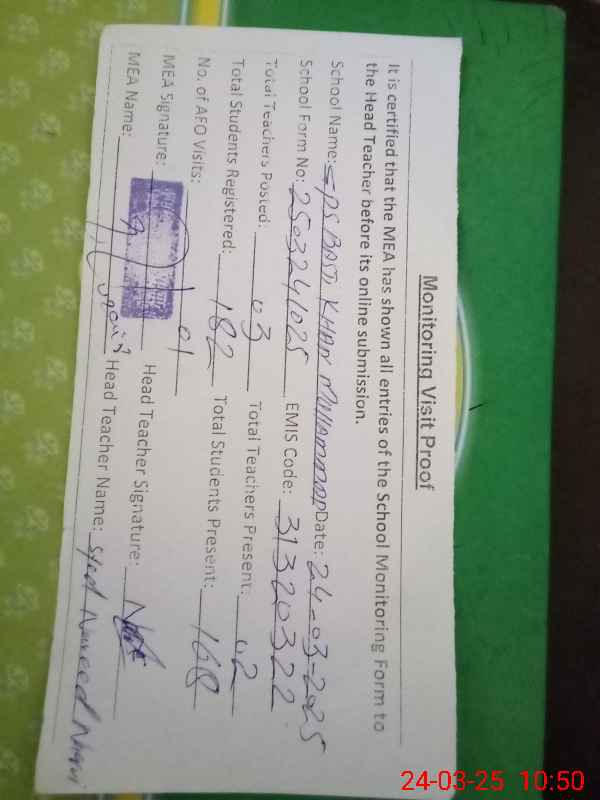 Monitoring Visit Proof
It is certified that the MEA has shown all entries of the School Monitoring Form to
the Head Teacher before its online submission.
School Name: GPS BASTI KHAN MUHAMMAD Date: 24-03-2025
School Form No: 2503241025 EMIS Code: 31320322
Total Teachers Posted: 03 Total Teachers Present: 02
Total Students Registered: 182 Total Students Present: 168
No. of AEO Visits: 01
MEA Signature: Head Teacher Signature:
MEA Name: Head Teacher Name: Syed Naveed
24-03-25 10:50